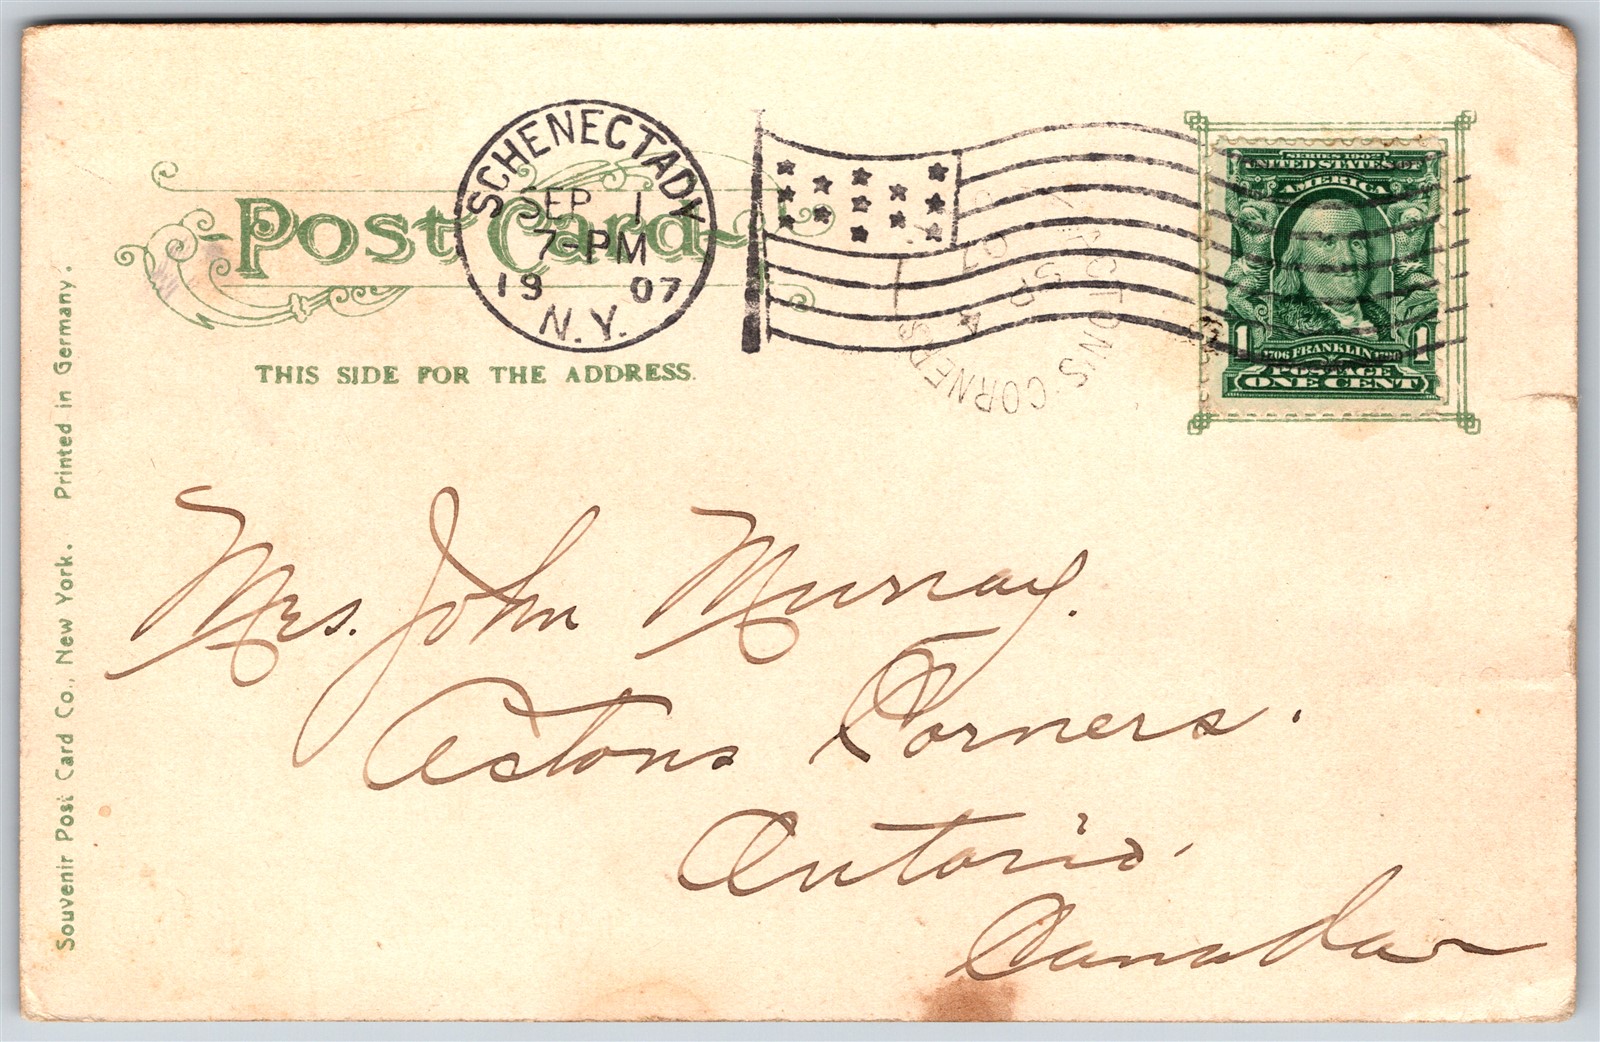 Post Card
SCHENECTADY
SEP 1
7-PM
19 07
N.Y.
THIS SIDE FOR THE ADDRESS.
SERIES 1902
UNITED STATES OF
AMERICA
1 1
1706 FRANKLIN 1790
POSTAGE
ONE CENT
ACTON'S CORNERS
SP 4
07
Mrs. John Murray.
Actons Corners.
Ontario.
Canada
Souvenir Post Card Co., New York. Printed in Germany.